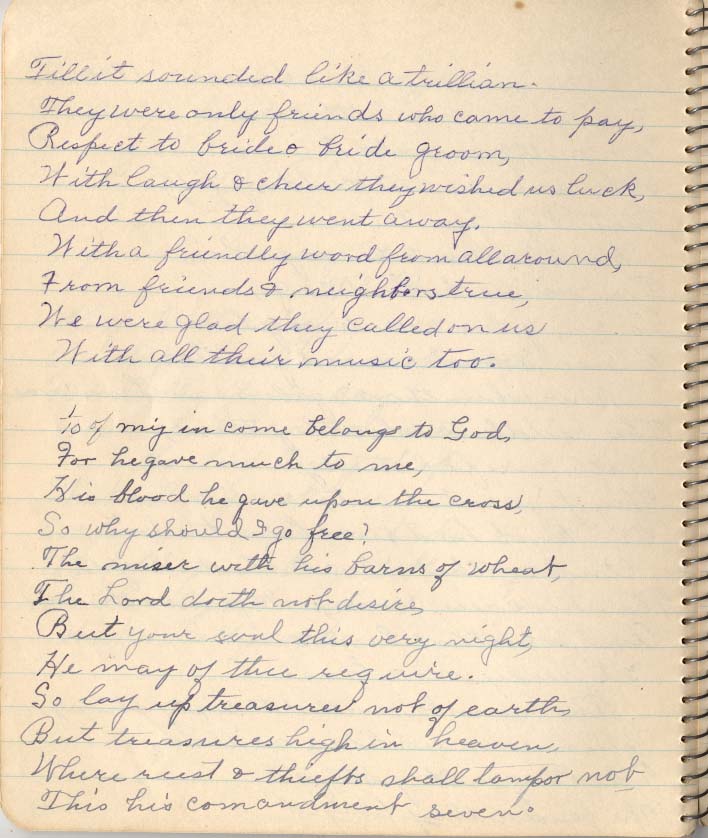 Till it sounded like a trillian.
They were only friends who came to pay,
Respect to bride & bride groom,
With laugh & cheer they wished us luck,
And then they went away.
With a friendly word from all around,
From friends & neighbors true,
We were glad they called on us
With all their music too.
1/10 of my in come belongs to God,
For he gave much to me,
His blood he gave upon the cross,
So why should I go free?
The miser with his barns of wheat,
The Lord doeth not desire,
But your soul this very night,
He may of thee require.
So lay up treasures not of earth,
But treasures high in heaven,
Where rust & thiefts shall tampor not,
This his comandment seven.